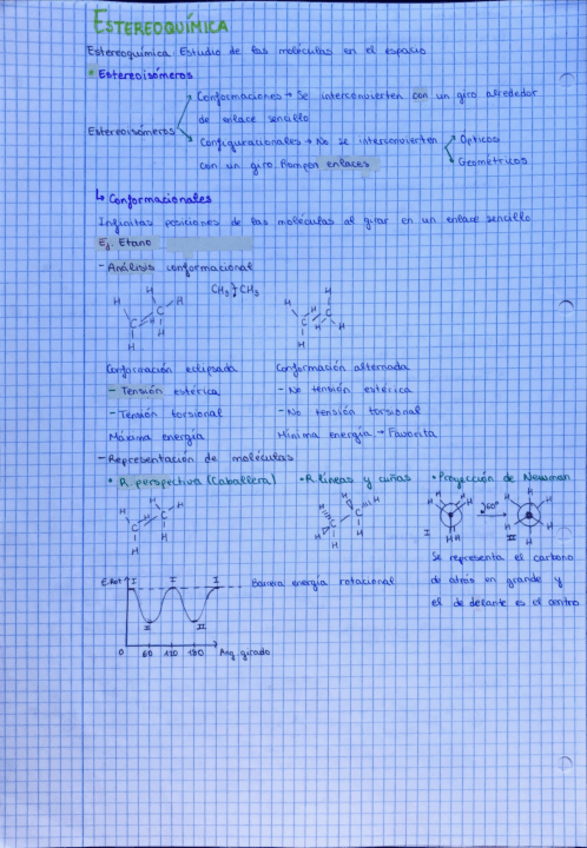 ESTEREOQUÍMICA
Estereoquímica Estudio de las moléculas en el espacio
• Estereoisómeros
Conformaciones → Se interconvierten con un giro alrededor
de enlace sencillo
Estereoisómeros
Configuracionales → No se interconvierten
Ópticos
con un giro. Rompen enlaces
Geométricos
↳ Conformacionales
Infinitas posiciones de las moléculas al girar en un enlace sencillo
Ej. Etano
- Análisis conformacional
CH3 CH3
H H H H H C C H
H H H H H C C H
Conformación eclipsada Conformación alternada
- Tensión estérica - No tensión estérica
- Tensión torsional - No tensión torsional
Máxima energía Mínima energía → Favorita
- Representación de moléculas
• R. perspectiva (Caballera) • R. líneas y cuñas • Proyección de Newman
H H H H H C C H
H H H H H C C H
H H H I H H 60° H H H II H H H
Se representa el carbono
de atrás en grande y
el de delante es el centro
E. Rot I I I Barrera energía rotacional
II II
0 60 120 180 Ang. girado